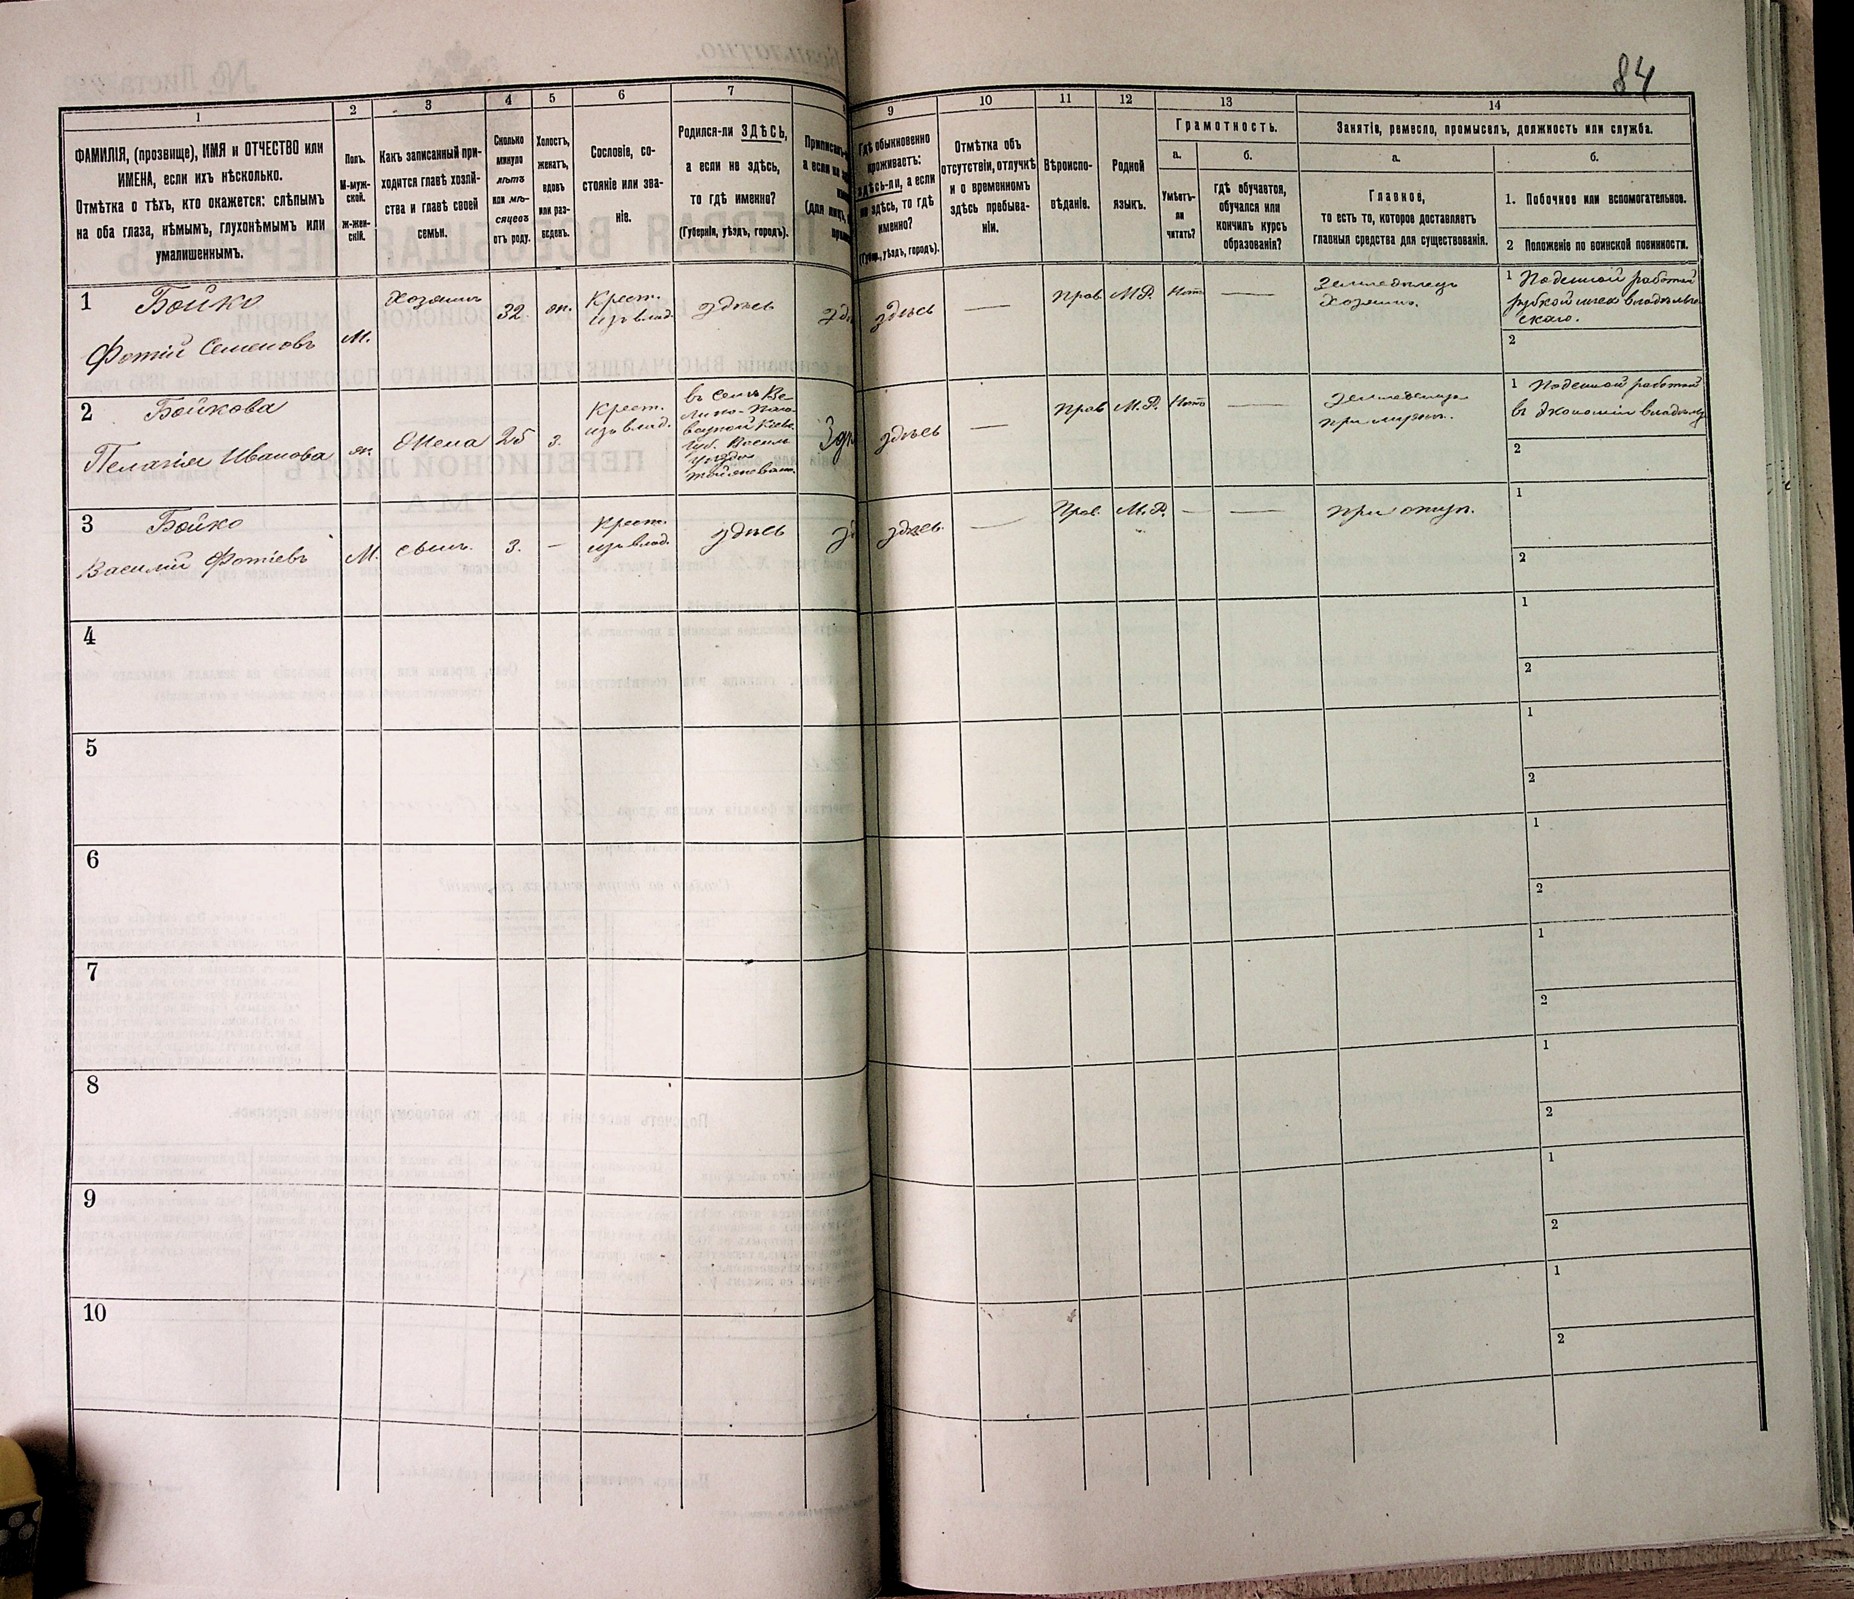 84
1
2
3
4
5
6
7
9
10
11
12
13
14
ФАМИЛІЯ, (прозвище), ИМЯ и ОТЧЕСТВО или
ИМЕНА, если ихъ нѣсколько.
Отмѣтка о тѣхъ, кто окажется: слѣпымъ
на оба глаза, нѣмымъ, глухонѣмымъ или
умалишеннымъ.
Полъ.
М-муж-
ской.
Ж-жен-
скій.
Какъ записанный при-
ходится главѣ хозяй-
ства и главѣ своей
семьи.
Сколько
минуло
лѣтъ
или мѣ-
сяцевъ
отъ роду.
Холостъ,
женатъ,
вдовъ
или раз-
веденъ.
Сословіе, со-
стояніе или зва-
ніе.
Родился-ли ЗДѢСЬ,
а если не здѣсь,
то гдѣ именно?
(Губернія, уѣздъ, городъ).
Гдѣ обыкновенно
проживаетъ:
здѣсь-ли, а если
не здѣсь, то гдѣ
именно?
(Губер., уѣздъ, городъ).
Отмѣтка объ
отсутствіи, отлучкѣ
и о временномъ
здѣсь пребыва-
ніи.
Вѣроиспо-
вѣданіе.
Родной
языкъ.
Грамотность.
а.
Умѣетъ-
ли
читать?
б.
гдѣ обучается,
обучался или
кончилъ курсъ
образованія?
Занятіе, ремесло, промыселъ, должность или служба.
а.
Главное,
то есть то, которое доставляетъ
главныя средства для существованія.
б.
1. Побочное или вспомогательное.
2 Положеніе по воинской повинности.
1 Бойко
Фотій Семеновъ
М.
Хозяинъ
32
жн.
Крест.
изъ влад.
здѣсь
здѣсь
—
Прав.
М.Р.
Нѣтъ
—
Земледѣлец
Хозяинъ.
1 Поденной работой
2
2 Бойкова
Пелагія Ивановa
жн.
Жена
25
з.
Крест.
изъ влад.
здѣсь
—
Прав.
М.Р.
Нѣтъ
—
при мужѣ.
1 Поденной работой
въ экономіи
2
3 Бойко
Василій Фотіевъ
М.
сынъ.
3.
—
Крест.
изъ влад.
здѣсь
здѣсь
—
Прав.
М.Р.
—
—
при отцѣ.
1
2
4
1
2
5
1
2
6
1
2
7
1
2
8
1
2
9
1
2
10
1
2